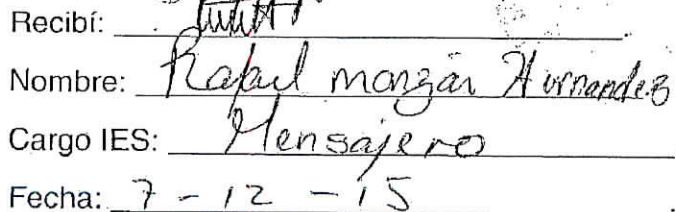 Recibí:
Nombre: Rafael monzón Hernandez
Cargo IES: Mensajero
Fecha: 7 - 12 - 15